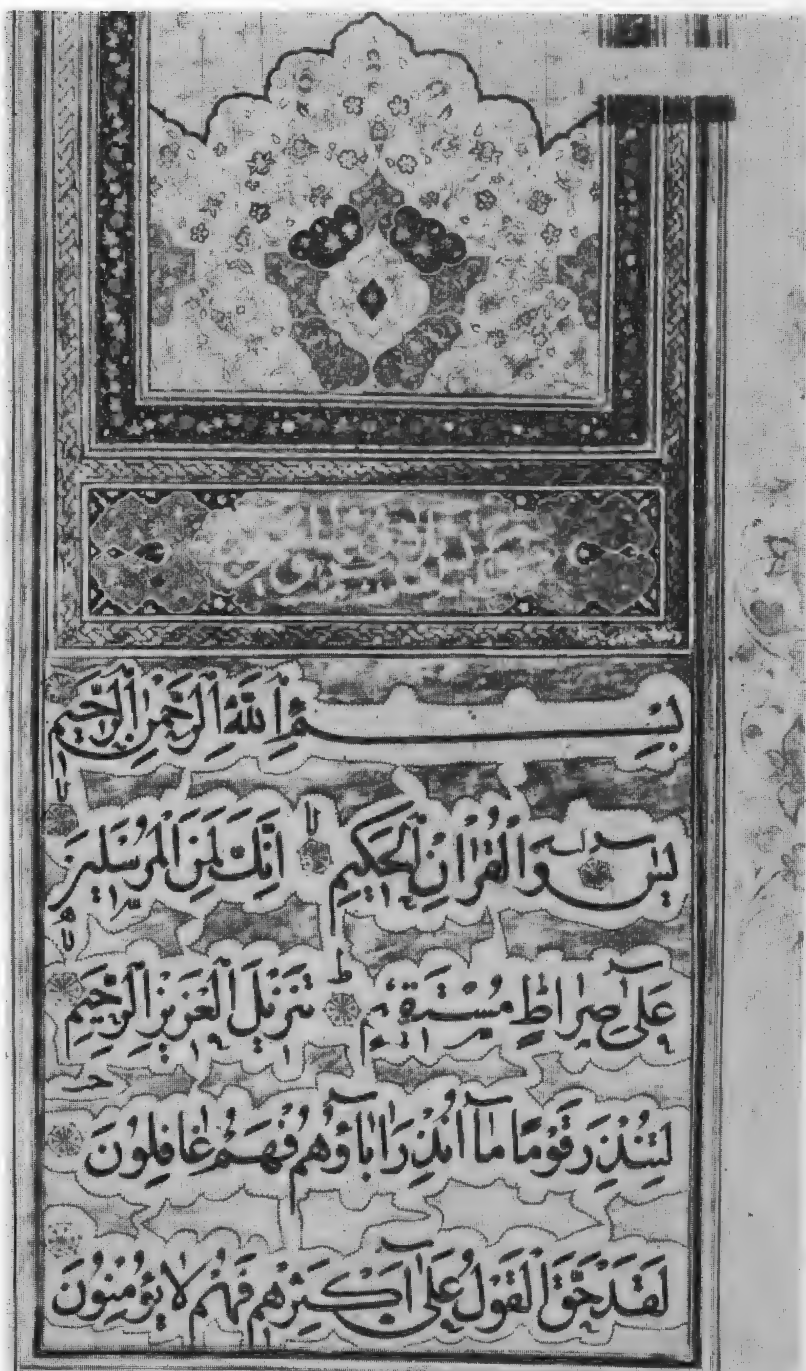 بِسْمِ اللّٰهِ الرَّحْمٰنِ الرَّحِيمِ
يٰسٓ وَالْقُرْاٰنِ الْحَكِيمِ اِنَّكَ لَمِنَ الْمُرْسَلِينَ
عَلٰى صِرَاطٍ مُسْتَقِيمٍ تَنْزِيلَ الْعَزِيزِ الرَّحِيمِ
لِتُنْذِرَ قَوْمًا مَٓا اُنْذِرَ اٰبَٓاؤُهُمْ فَهُمْ غَافِلُونَ
لَقَدْ حَقَّ الْقَوْلُ عَلٰٓى اَكْثَرِهِمْ فَهُمْ لَا يُؤْمِنُونَ